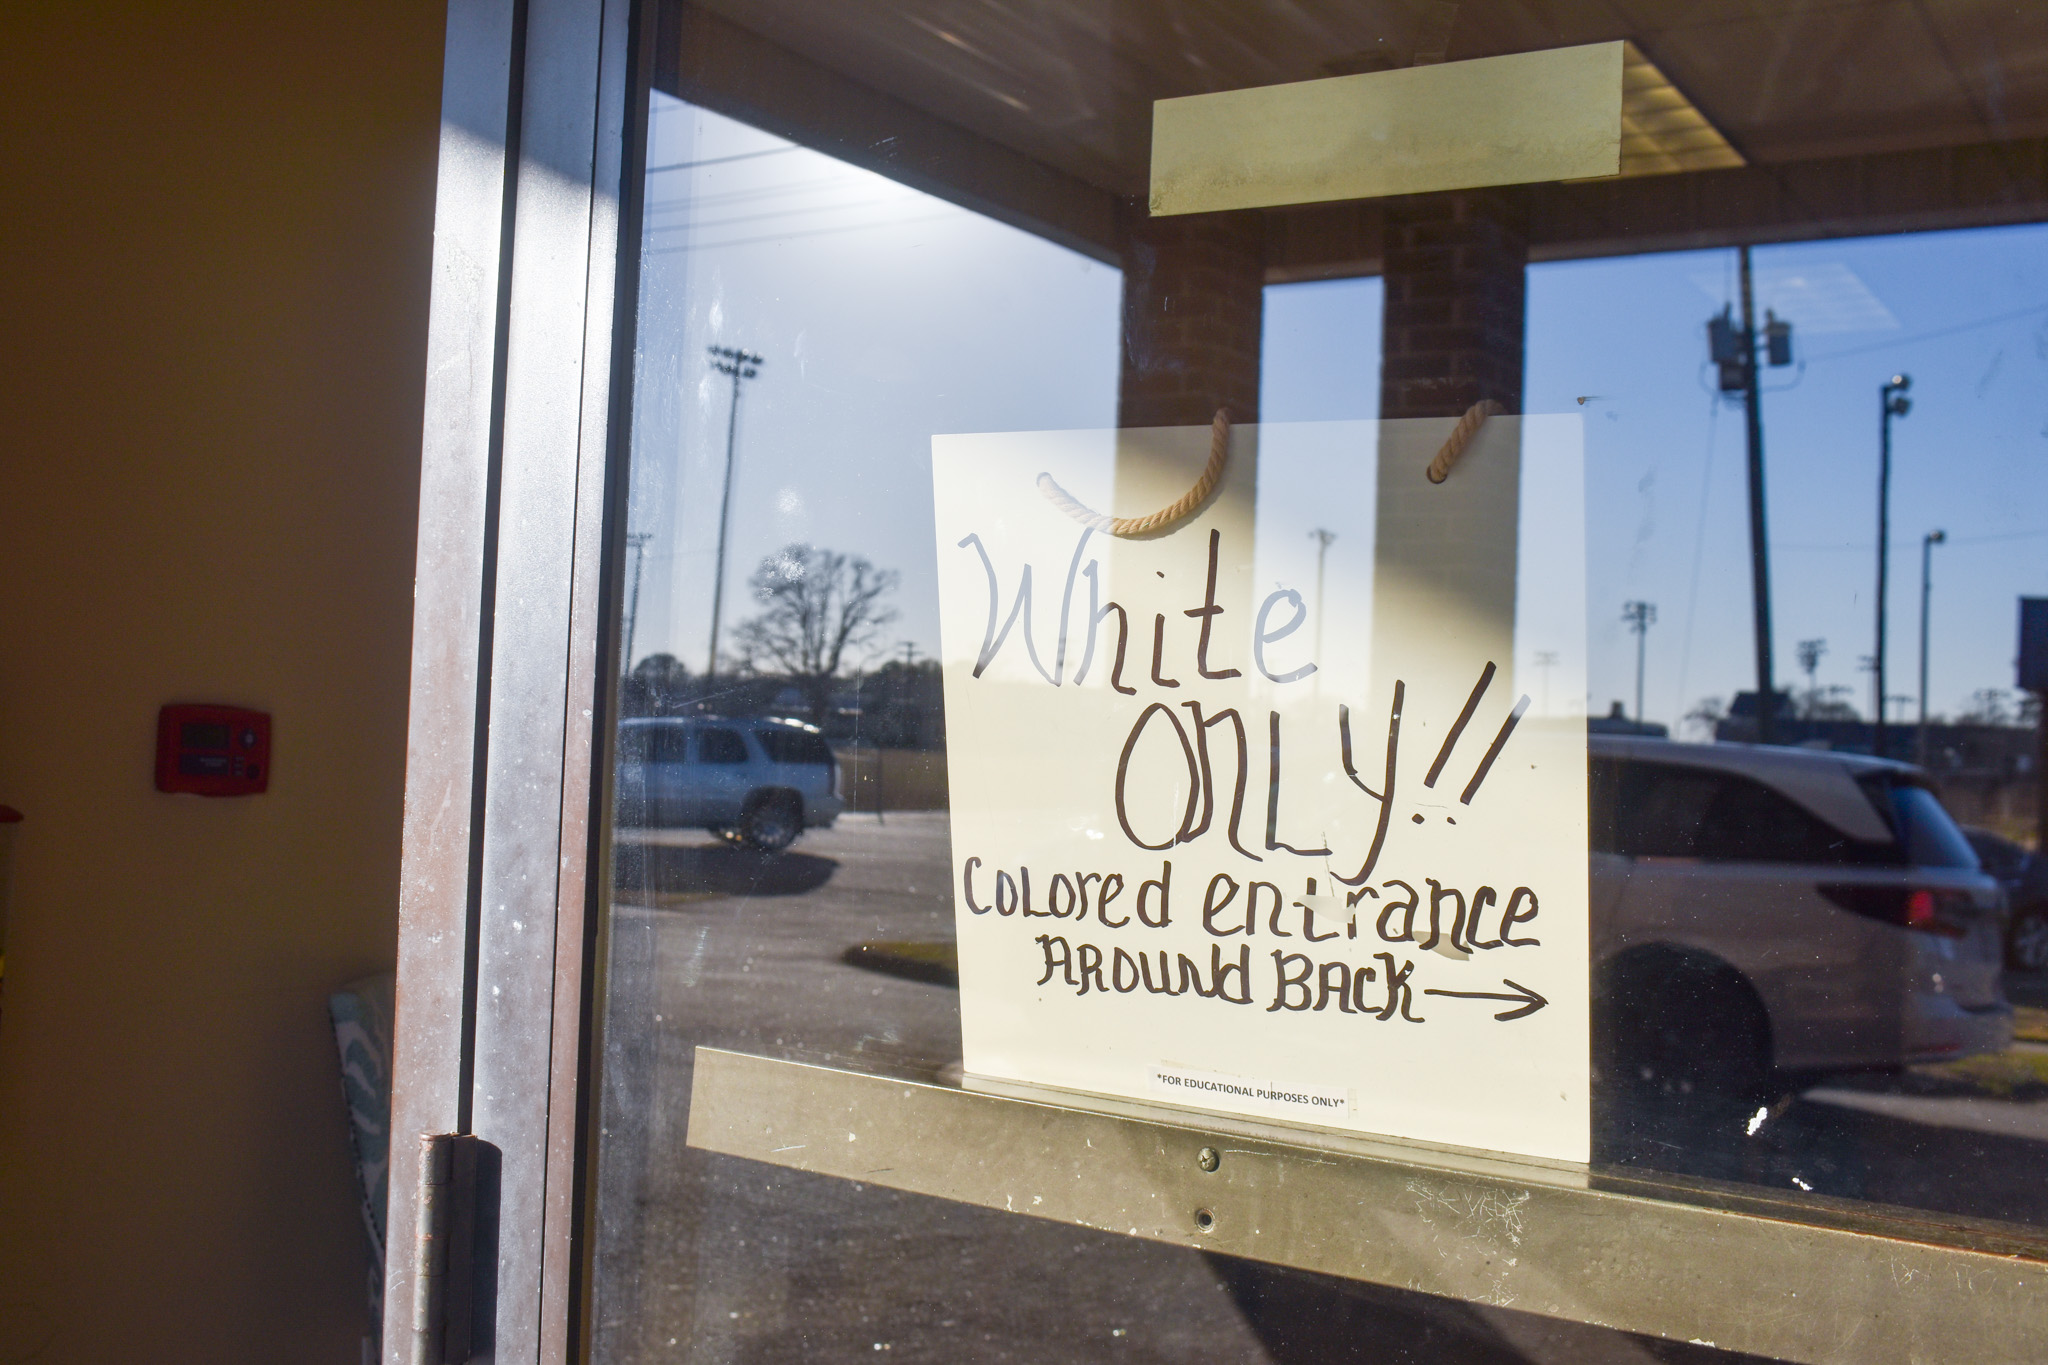 White
ONLY!!
COLORed entrance
AROUNd BACK →
*FOR EDUCATIONAL PURPOSES ONLY*